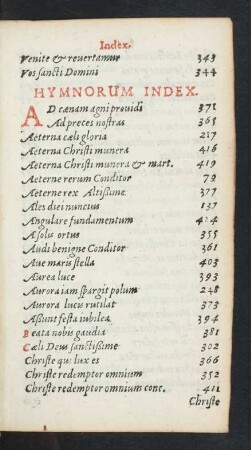 Index.
Venite & reuertamur 343
Vos sancti Domini 344
HYMNORUM INDEX.
AD cænam agni prouidi 371
Ad preces nostras 365
Aeterna cæli gloria 217
Aeterna Christi munera 416
Aeterna Christi munera & mart. 419
Aeterne rerum Conditor 79
Aeterne rex Altißime 377
Ales diei nuncius 137
Angulare fundamentum 424
A solis ortus 355
Audi benigne Conditor 361
Aue maris stella 403
Aurea luce 393
Aurora iam spargit polum 248
Aurora lucis rutilat 373
Aßunt festa iubilea 394
Beata nobis gaudia 381
Cæli Deus sanctißime 302
Christe qui lux es 366
Christe redemptor omnium 352
Christe redemptor omnium conc. 411
Christe